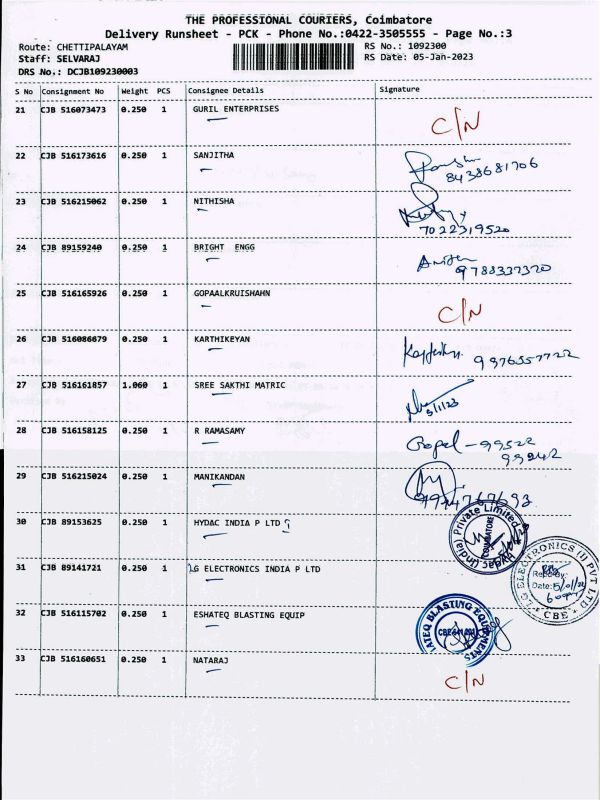 THE PROFESSIONAL COURIERS, Coimbatore
Delivery Runsheet - PCK - Phone No.:0422-3505555 - Page No.:3
Route: CHETTIPALAYAM RS No.: 1092300
Staff: SELVARAJ RS Date: 05-Jan-2023
DRS No.: DCJB109230003
S No Consignment No Weight PCS Consignee Details Signature
21 CJB 516073473 0.250 1 GURIL ENTERPRISES C/N
22 CJB 516173616 0.250 1 SANJITHA
8438681706
23 CJB 516215062 0.250 1 NITHISHA
7022319520
24 CJB 89159240 0.250 1 BRIGHT ENGG
9788337320
25 CJB 516165926 0.250 1 GOPAALKRUISHAHN C/N
26 CJB 516086679 0.250 1 KARTHIKEYAN
27 CJB 516161857 1.060 1 SREE SAKTHI MATRIC
5/1/23
28 CJB 516158125 0.250 1 R RAMASAMY Gopal - 99522
99242
29 CJB 516215024 0.250 1 MANIKANDAN
30 CJB 89153625 0.250 1 HYDAC INDIA P LTD
Hydac (India) Private Limited
COIMBATORE
31 CJB 89141721 0.250 1 LG ELECTRONICS INDIA P LTD
LG ELECTRONICS (I) PVT LTD
Date:
CBE
32 CJB 516115702 0.250 1 ESHATEQ BLASTING EQUIP
ATEQ BLASTING EQUIPMENTS
33 CJB 516160651 0.250 1 NATARAJ C/N